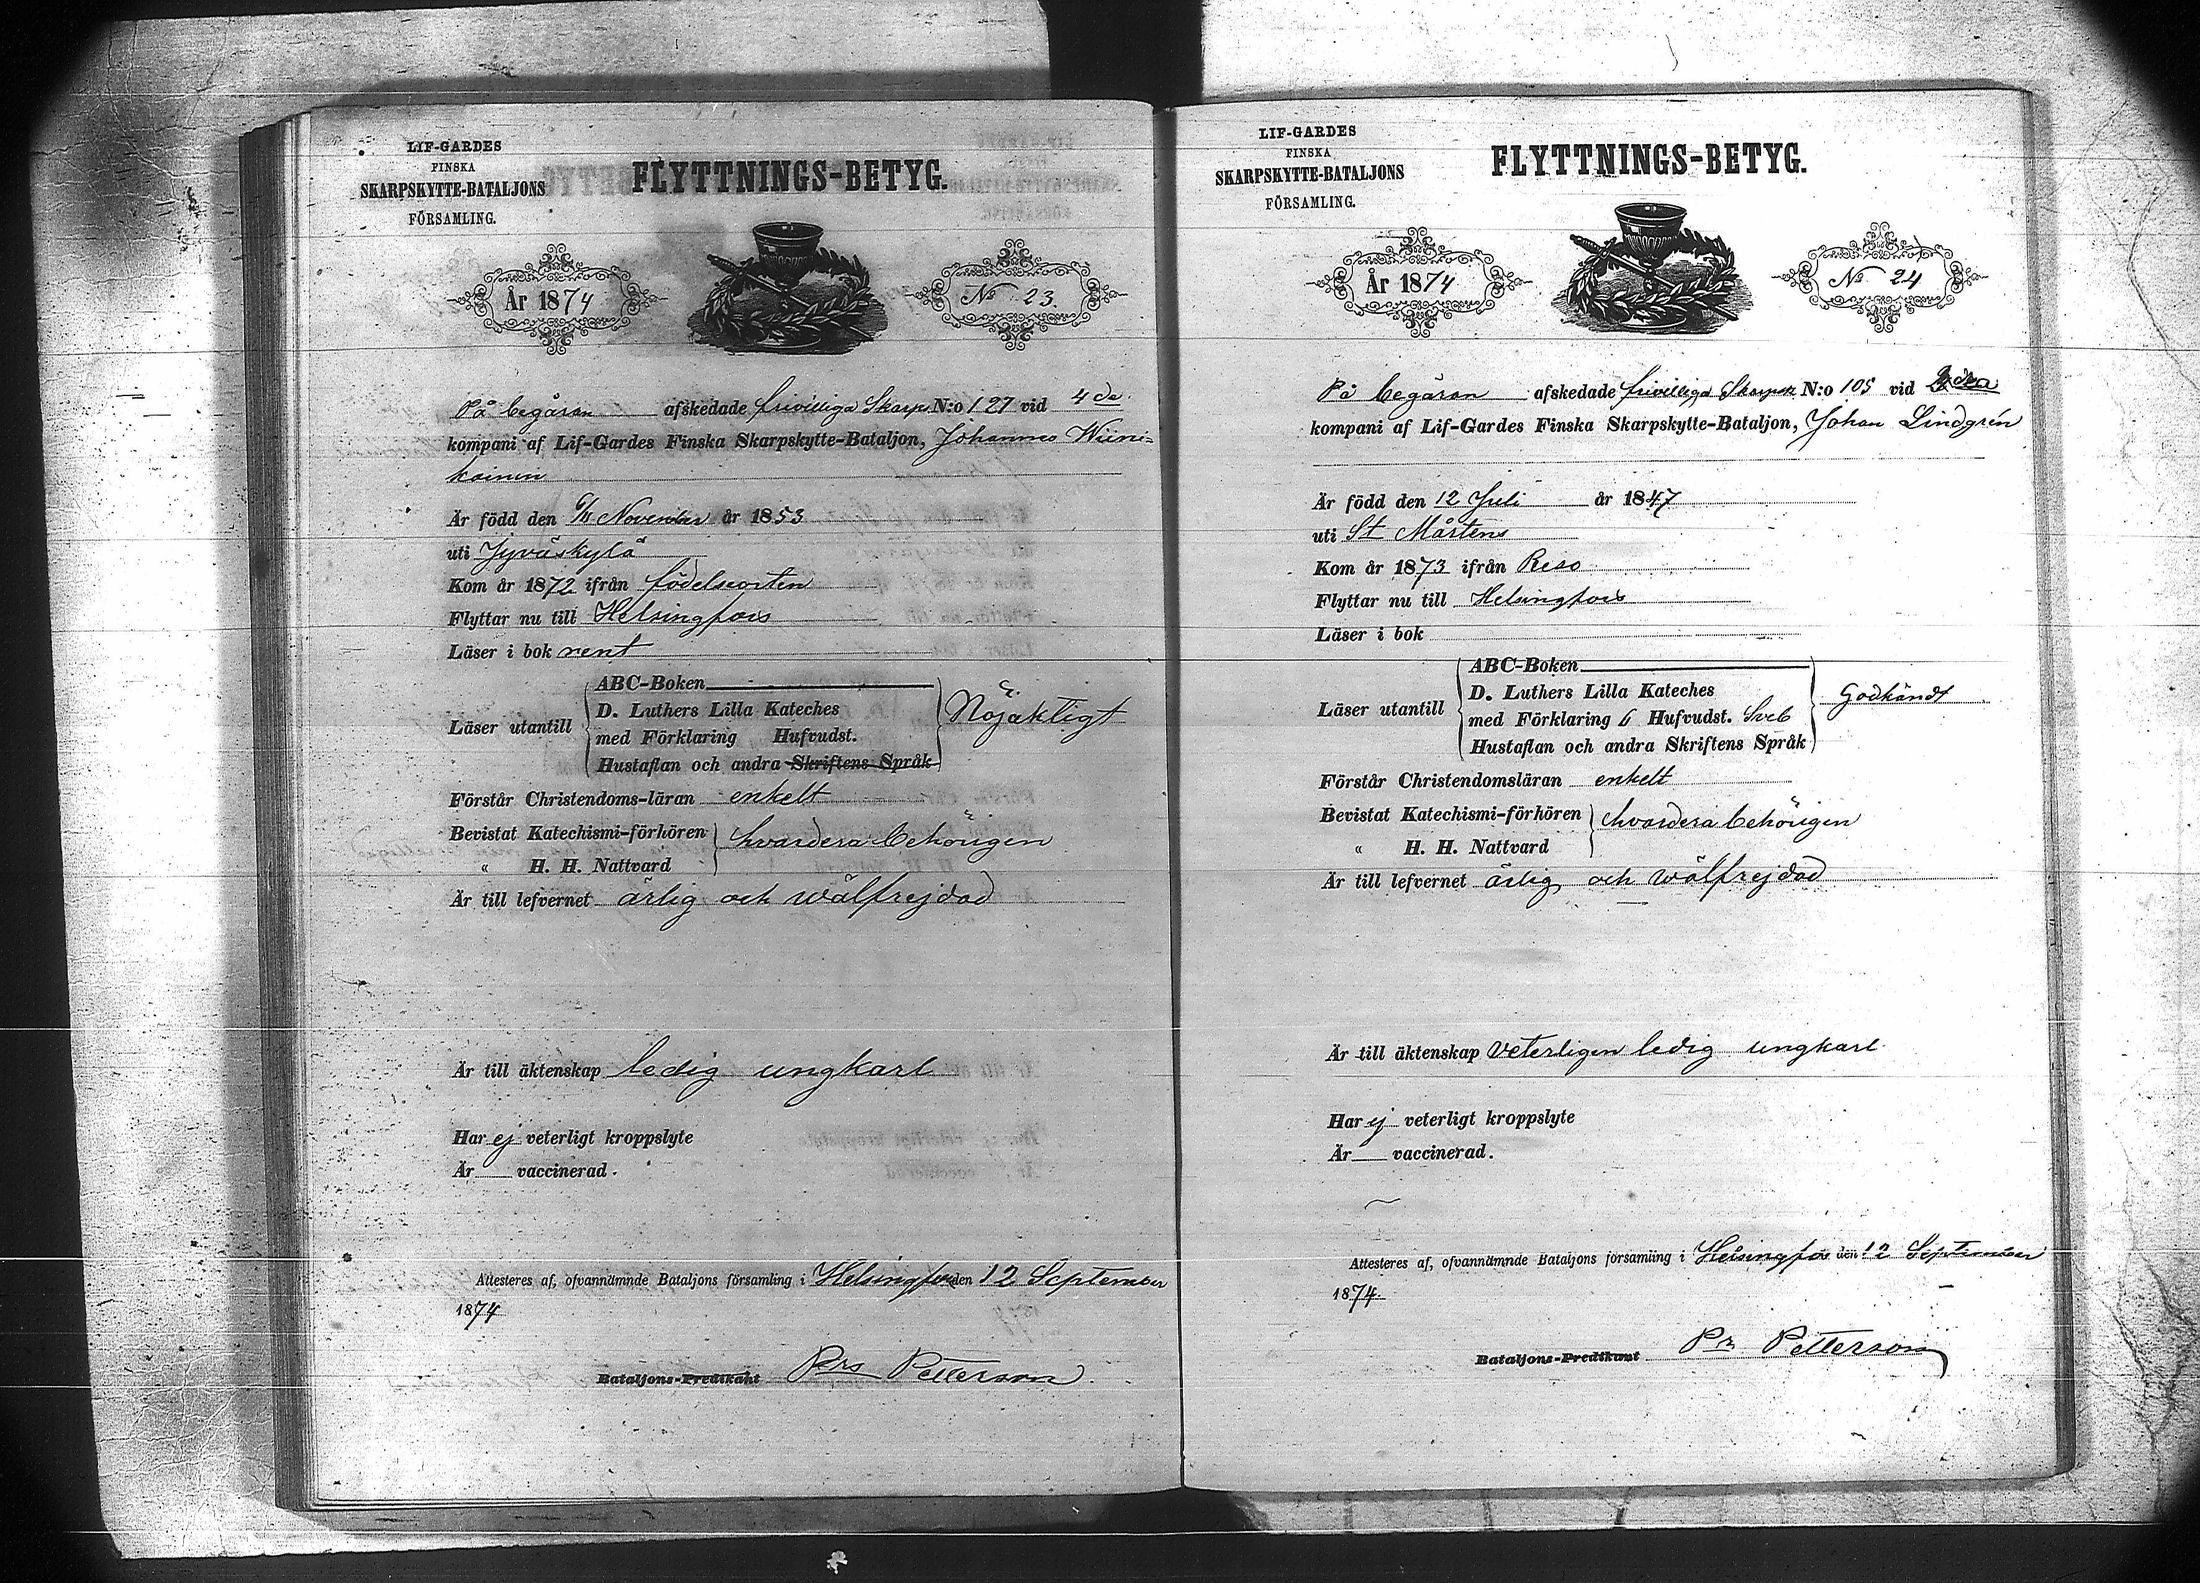 LIF-GARDES
FINSKA
SKARPSKYTTE-BATALJONS
FÖRSAMLING.
FLYTTNINGS-BETYG.
År 1874
No 23.
På begäran afskedade frivilliga Skarps N:o 127 vid 4de
kompani af Lif-Gardes Finska Skarpskytte-Bataljon, Johannes Wiini-
kainen
Är född den 6/11 November år 1853
uti Jyväskylä
Kom år 1872 ifrån födelseorten
Flyttar nu till Helsingfors
Läser i bok rent
Läser utantill
ABC-Boken
D. Luthers Lilla Kateches
med Förklaring Hufvudst.
Hustaflan och andra Skriftens Språk
Nöjaktigt
Förstår Christendoms-läran enkelt
Bevistat Katechismi-förhören
" H. H. Nattvard
hvardera behörigen
Är till lefvernet ärlig och wälfrejdad
Är till äktenskap ledig ungkarl
Har ej veterligt kroppslyte
Är vaccinerad.
Attesteras af, ofvannämnde Bataljons församling i Helsingfors den 12 September
1874
Bataljons-Predikant Prs Petterson.
LIF-GARDES
FINSKA
SKARPSKYTTE-BATALJONS
FÖRSAMLING.
FLYTTNINGS-BETYG.
År 1874
No 24
På begäran afskedade frivilliga Skarpsk N:o 105 vid
kompani af Lif-Gardes Finska Skarpskytte-Bataljon, Johan Lindgrén
Är född den 12 Juli år 1847
uti St Mårtens
Kom år 1873 ifrån Reso
Flyttar nu till Helsingfors
Läser i bok
Läser utantill
ABC-Boken
D. Luthers Lilla Kateches
med Förklaring 6 Hufvudst. Sveb
Hustaflan och andra Skriftens Språk
Godkändt
Förstår Christendomsläran enkelt
Bevistat Katechismi-förhören
" H. H. Nattvard
hvardera behörigen
Är till lefvernet ärlig och wälfrejdad
Är till äktenskap veterligen ledig ungkarl
Har ej veterligt kroppslyte
Är vaccinerad.
Attesteres af, ofvannämnde Bataljons församling i Helsingfors den 12 September
1874.
Bataljons-Predikant Pr Petterson